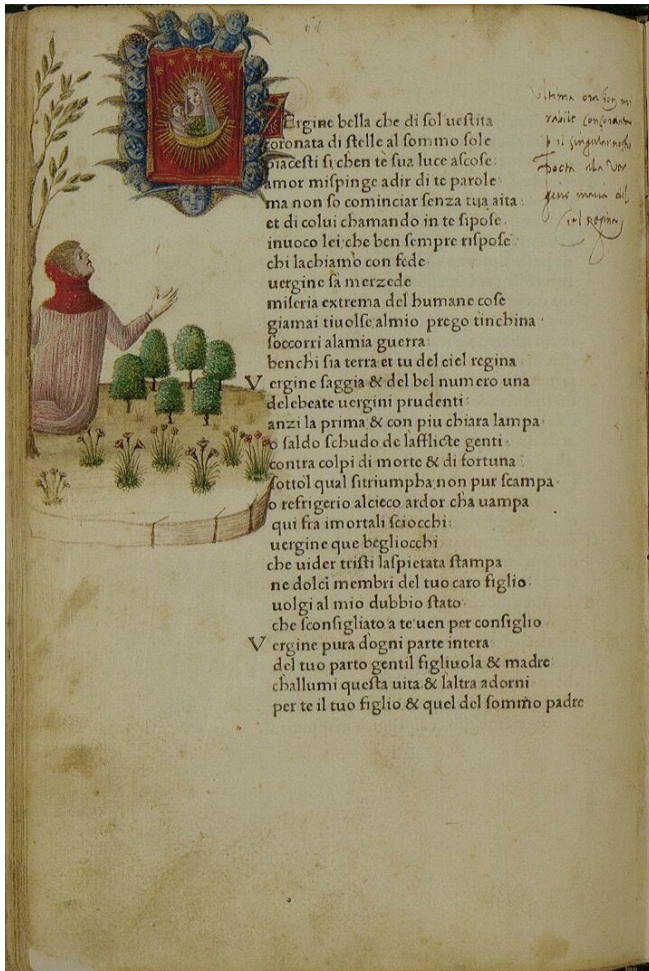 Vergine bella che di sol uestita
coronata di stelle al sommo sole
piacesti si chen te sua luce ascose:
amor mispinge adir di te parole
ma non so cominciar senza tua aita
et di colui chamando in te sipose.
inuoco lei che ben sempre rispose
chi lachiamo con fede
uergine sa merzede
miseria extrema del humane cose
giamai tiuolse almio prego tinchina
soccorri alamia guerra
benchi sia terra et tu del ciel regina
Vergine saggia & del bel numero una
delebeate uergini prudenti:
anzi la prima & con piu chiara lampa
o saldo schudo de lafflicte genti
contra colpi di morte & di fortuna
sottol qual sitriumpha non pur scampa
o refrigerio alcieco ardor cha uampa
qui fra imortali sciocchi:
uergine que begliocchi
che uider tristi laspietata stampa
ne dolci membri del tuo caro figlio:
uolgi al mio dubbio stato
che sconsigliato a te uen per consiglio
Vergine pura dogni parte intera
del tuo parto gentil figliuola & madre
challumi questa uita & laltra adorni
per te il tuo figlio & quel del sommo padre
Vltima
rabile
il singular
Poeta alla Ver
maria del
ciel Regina